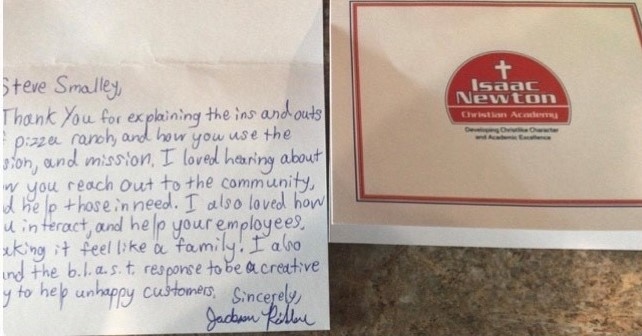 Steve Smalley,
Thank You for explaining the ins and outs
pizza ranch, and how you use the
sion, and mission. I loved hearing about
w you reach out to the community,
d help those in need. I also loved how
u interact, and help your employees,
aking it feel like a family! I also
und the b.l.a.s.t. response to be a creative
y to help unhappy customers.
Sincerely,
Jackson
Isaac
Newton
Christian Academy
Developing Christlike Character
and Academic Excellence